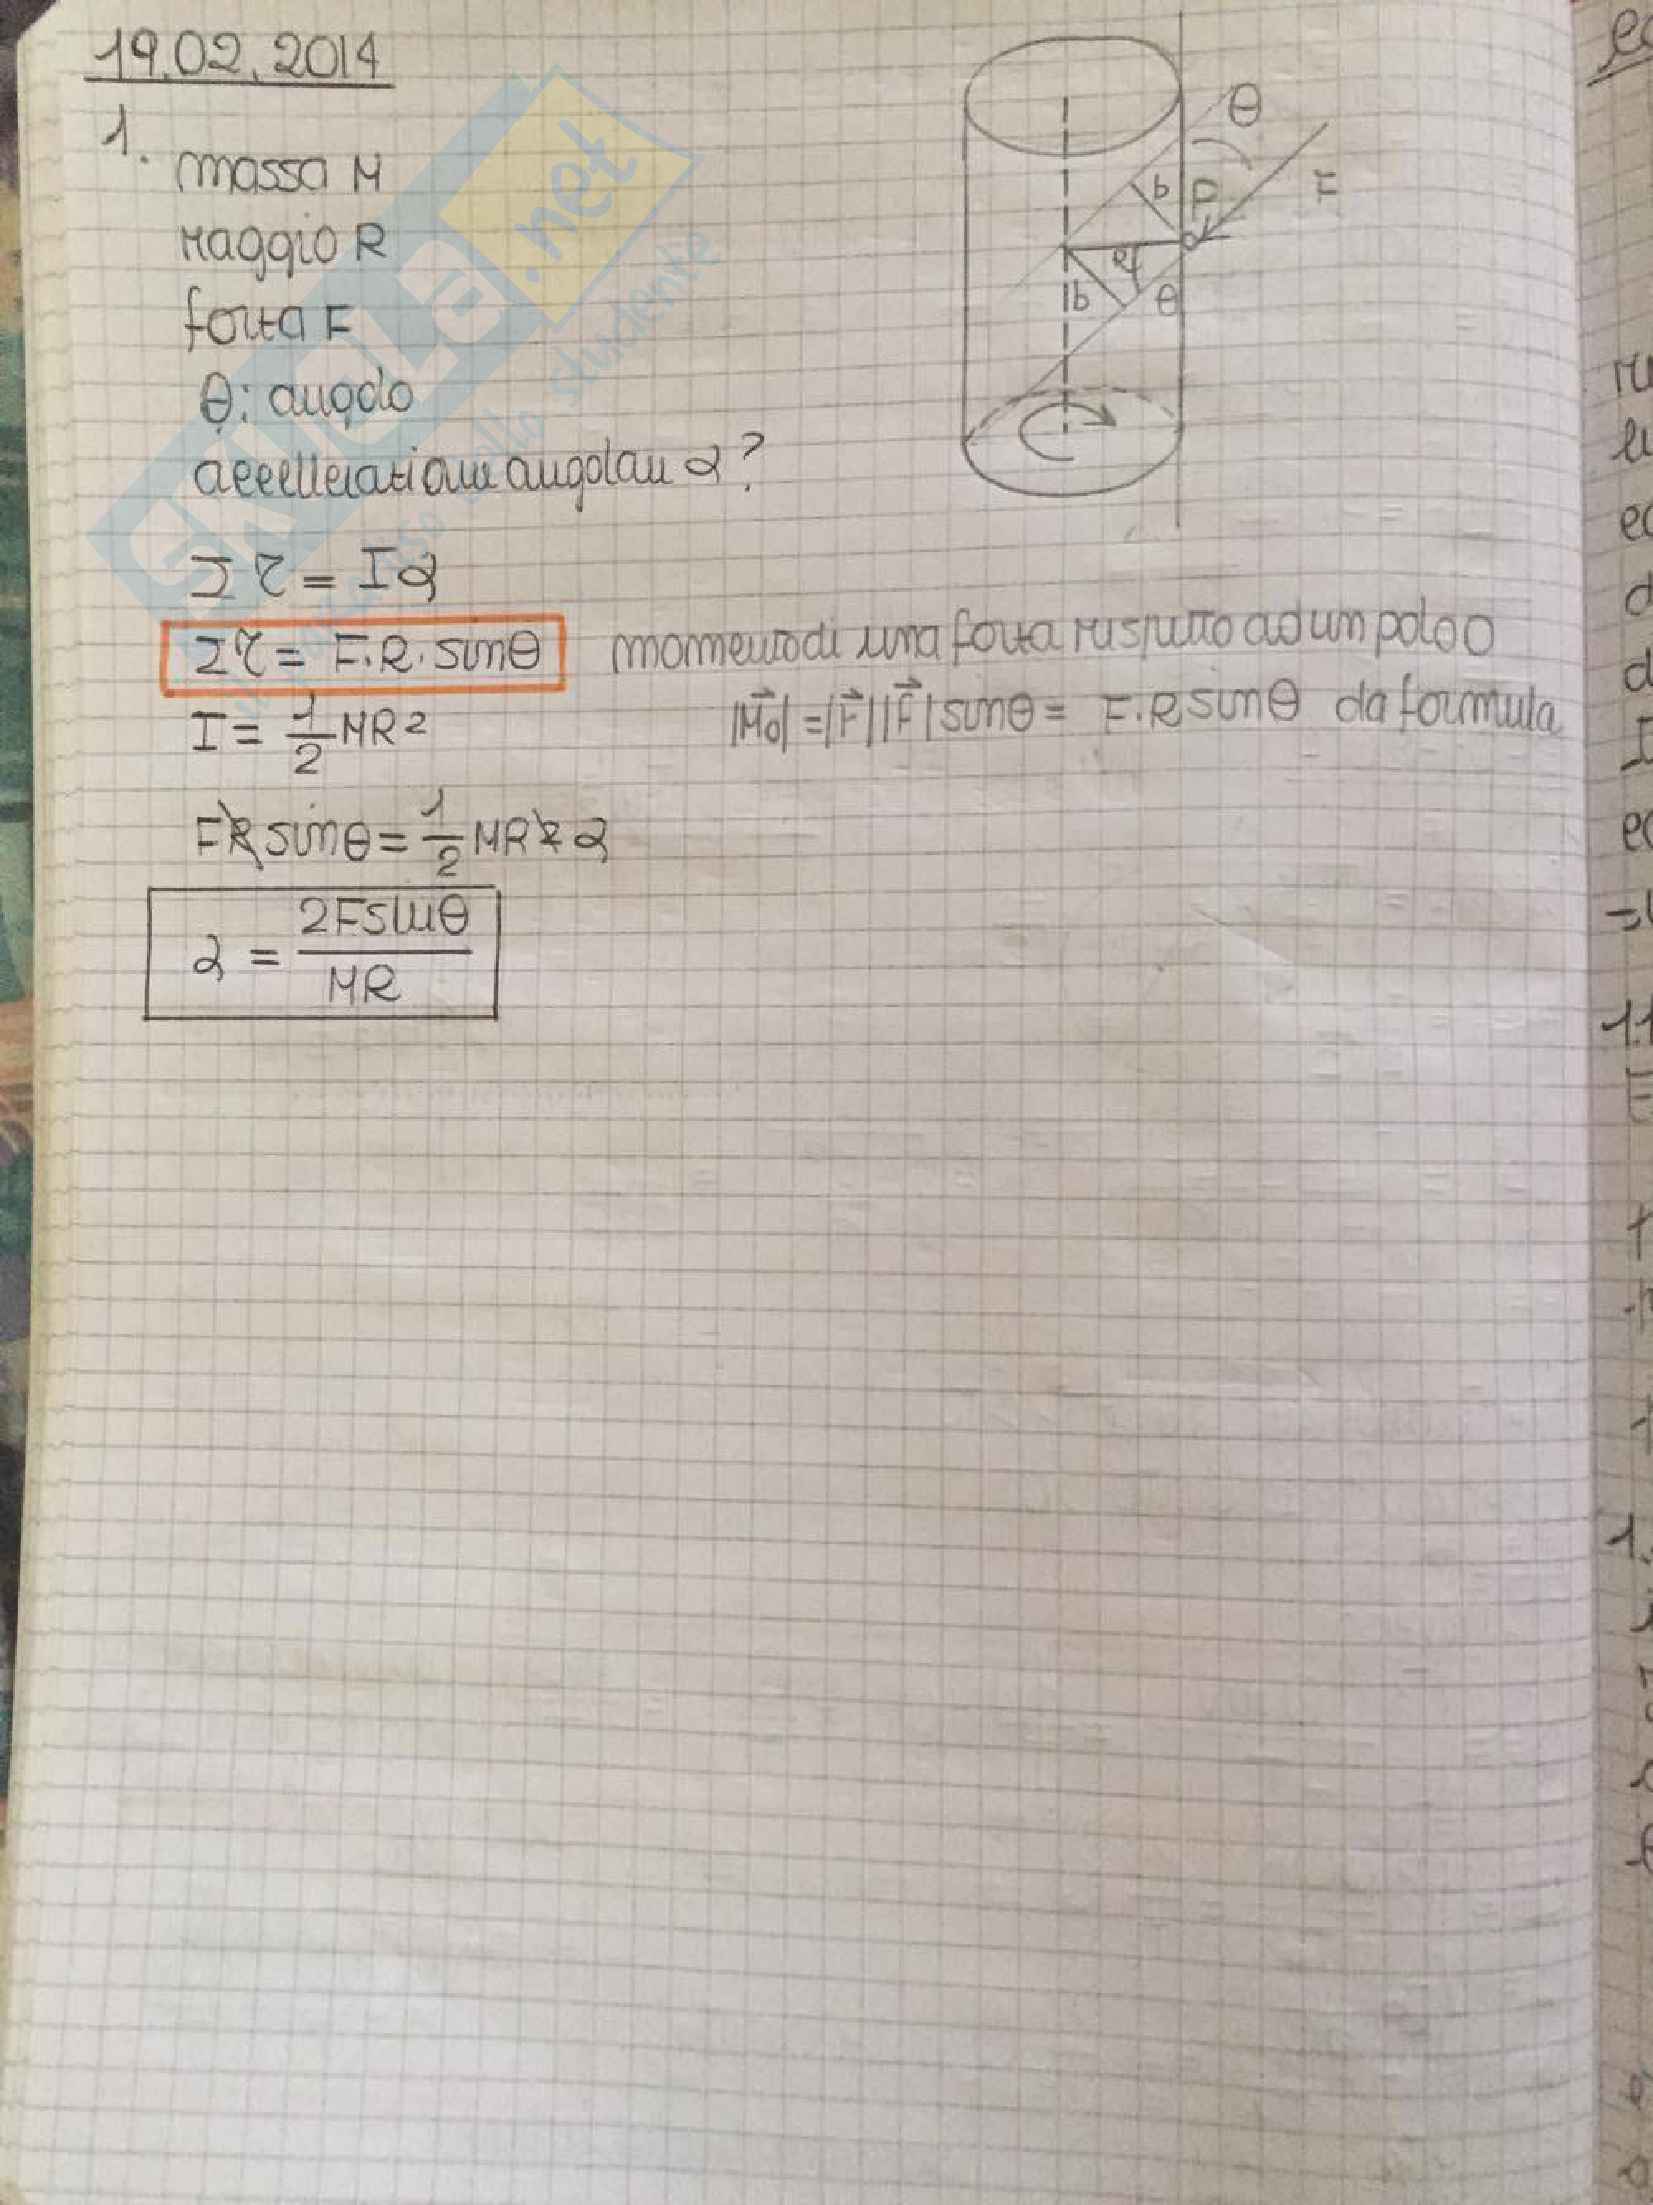 19.02.2014
1.
massa M
raggio R
forza F
θ: angolo
accellerazione angolare α?
Στ = Iα
Στ = F.R.sinθ momento di una forza rispetto ad un polo O
I = 1/2 MR2 |M⃗o| = |r⃗||F⃗| sinθ = F.R sinθ da formula
FR sinθ = 1/2 MR2 α
α = 2Fsinθ / MR
θ
F
P
b
R
b
θ
SKUOLA.net